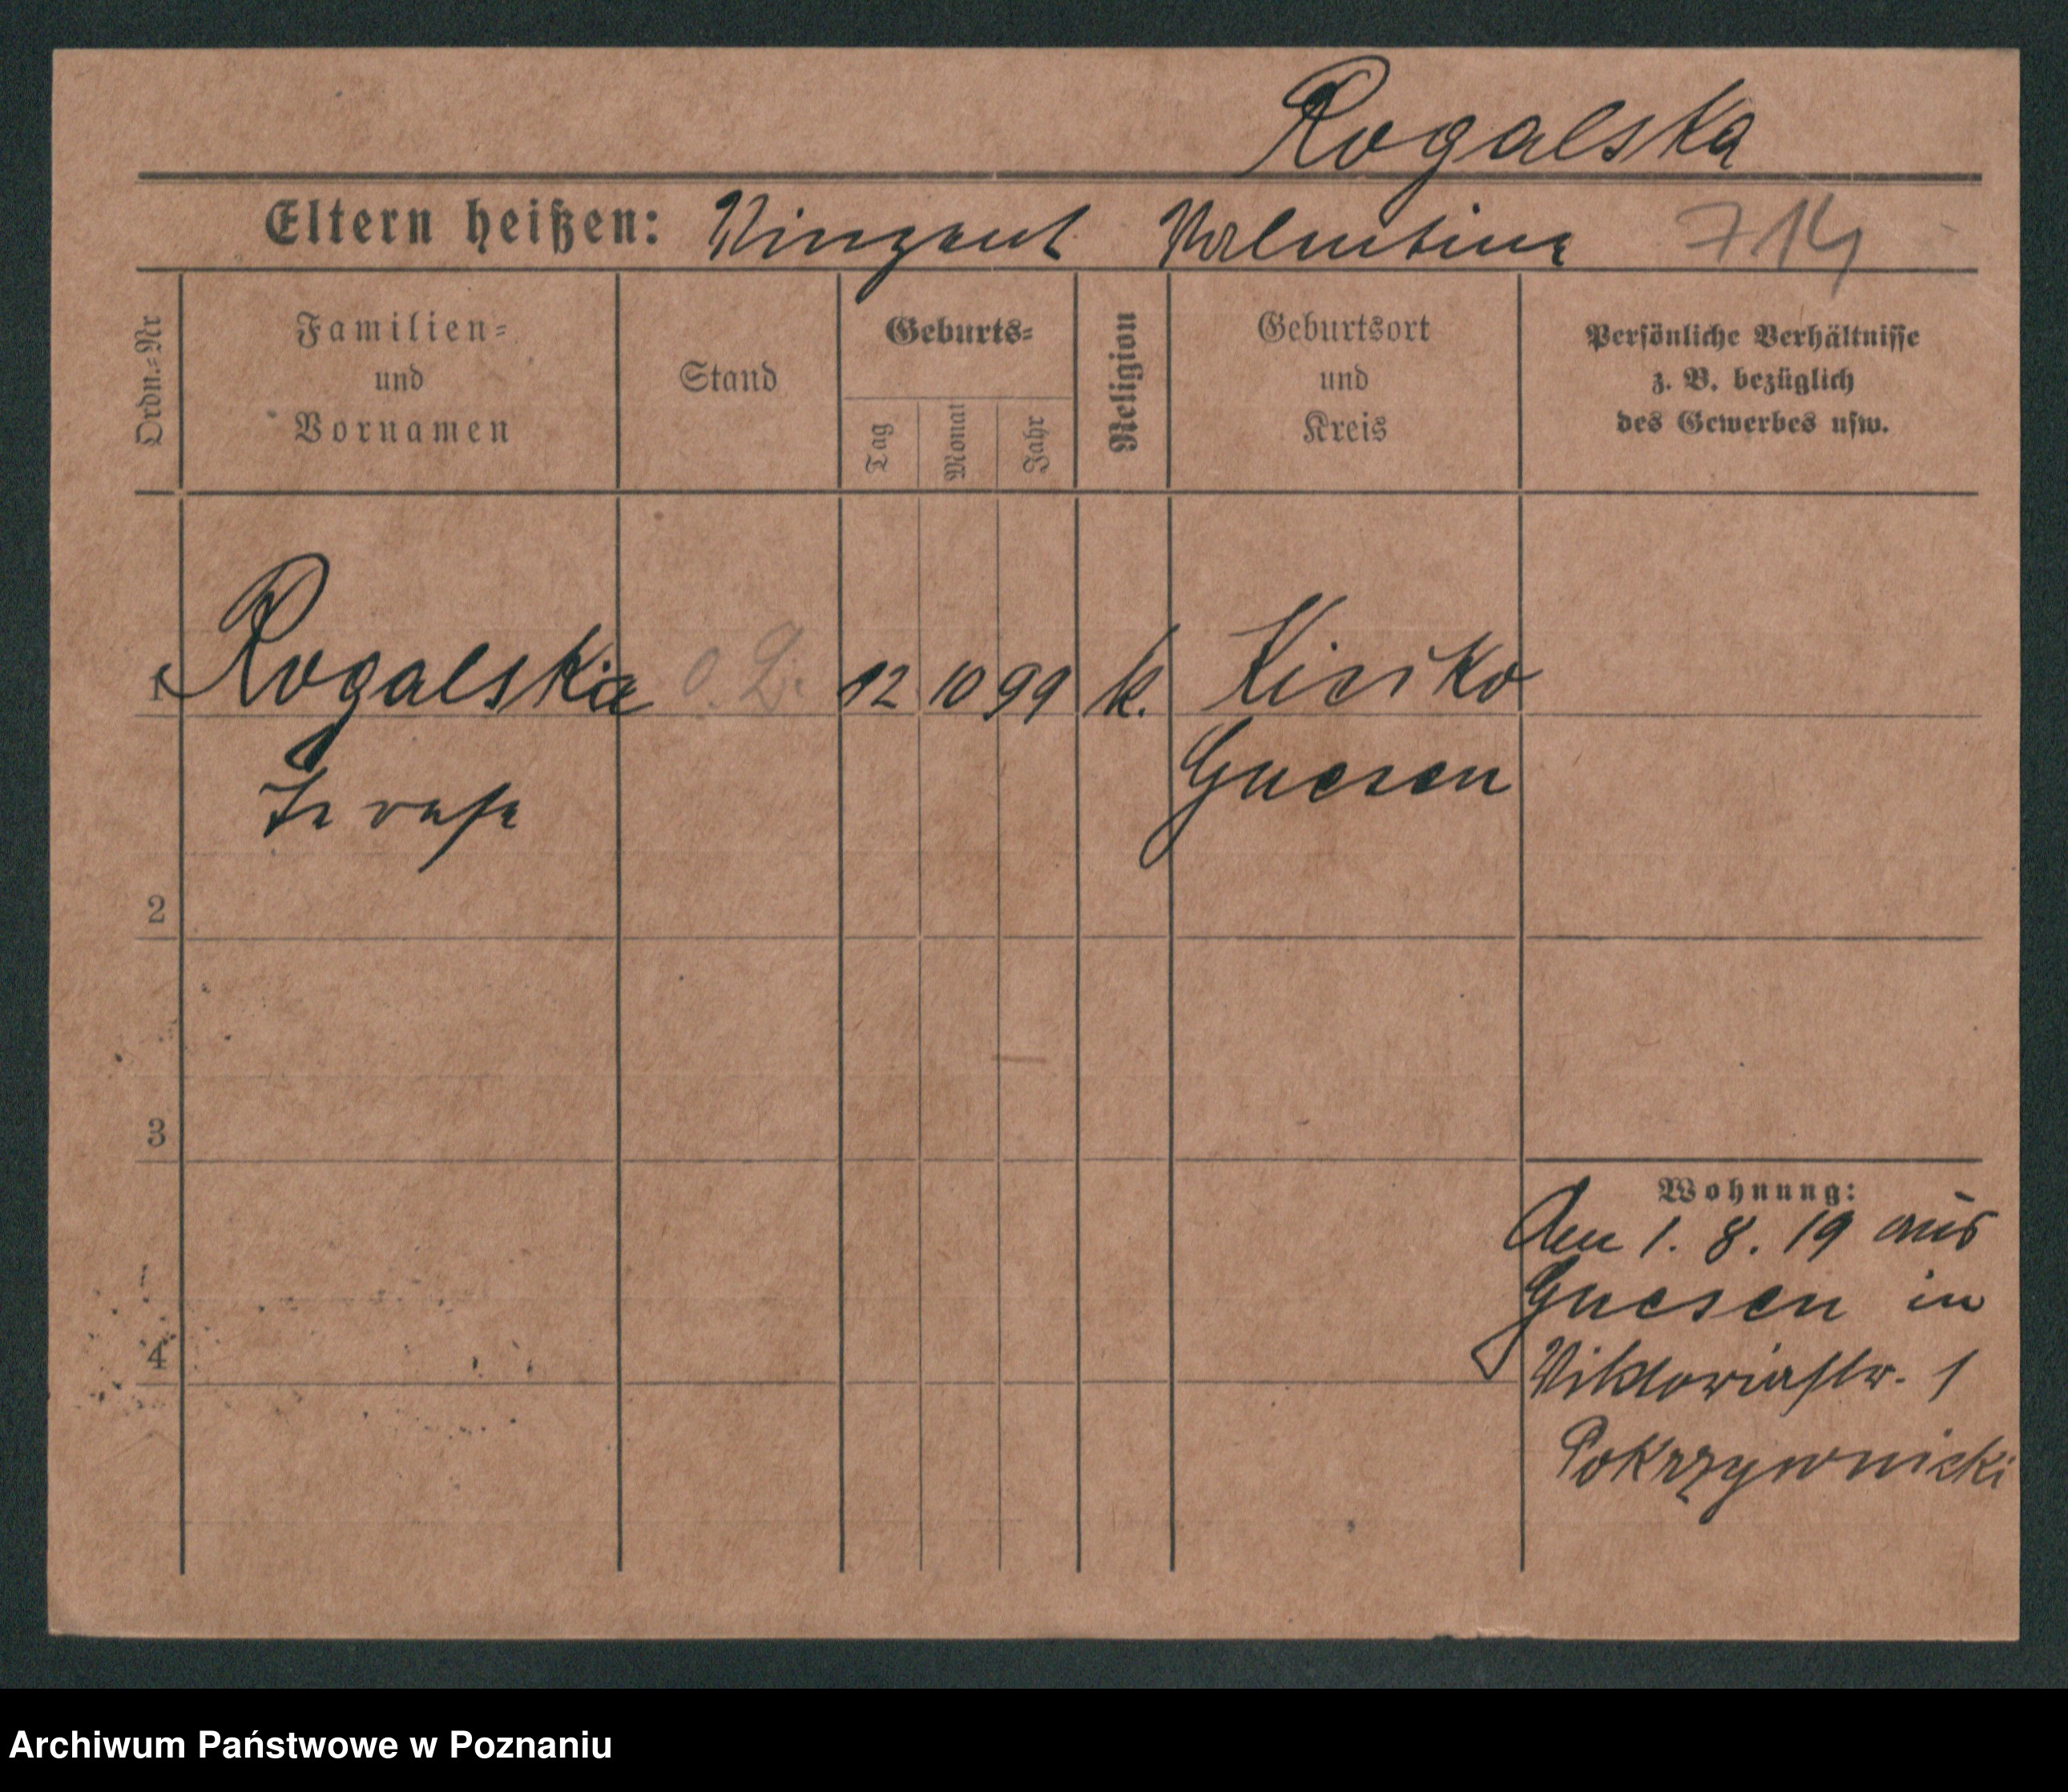 Rogalska
Eltern heißen: Vinzent Valentine 714
Ordn.=Nr
Familien=
und
Vornamen
Stand
Geburts=
Tag
Monat
Jahr
Religion
Geburtsort
und
Kreis
Persönliche Verhältnisse
z. B. bezüglich
des Gewerbes usw.
1 Rogalska 12 10 99 k.
Gnesen
2
3
4
Wohnung:
Am 1. 8. 19 aus
Gnesen in
Viktoriastr. 1
Pokrzywnicki
Archiwum Państwowe w Poznaniu